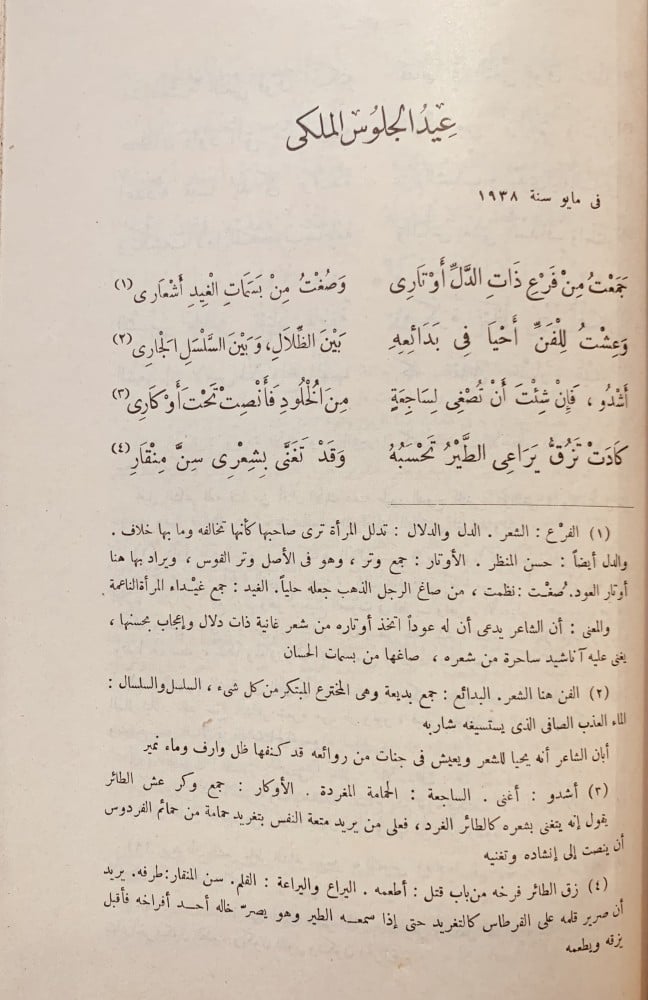 عِيدُ الجلُوسِ الملكى
فى مايو سنة ١٩٣٨
جَمَعْتُ مِنْ فَرْعِ ذَاتِ الدَّلِّ أَوْتَارِى وَصُغْتُ مِنْ بَسَمَاتِ الْغِيدِ أَشْعَارِى (١)
وَعِشْتُ لِلْفَنِّ أَحْيَا فِى بَدَائِعِهِ بَيْنَ الظِّلَالِ، وَبَيْنَ السَّلْسَلِ الْجَارِى (٢)
أَشْدُو ، فَإِنْ شِئْتَ أَنْ تُصْغِى لِسَاجِعَةٍ مِنَ الْخُلُودِ فَأَنْصِتْ تَحْتَ أَوْكَارِى (٣)
كَادَتْ تَزُقُّ يَرَاعِى الطَّيْرُ تَحْسَبُهُ وَقَدْ تَغَنَّى بِشِعْرِى سِنَّ مِنْقَارِ (٤)
(١) الفرْع : الشعر . الدل والدلال : تدلل المرأة ترى صاحبها كأنها تخالفه وما بها خلاف .
والدل أيضاً : حسن المنظر . الأوتار : جمع وتر ، وهو فى الأصل وتر القوس ، ويراد بها هنا
أوتار العود. صُغْت : نظمت ، من صاغ الرجل الذهب جعله حلياً. الغيد : جمع غيْداء المرأة الناعمة
والمعنى : أن الشاعر يدعى أن له عوداً اتخذ أوتاره من شعر غانية ذات دلال وإعجاب بحسنها ،
يغنى عليه آناشيد ساحرة من شعره ، صاغها من بسمات الحسان
(٢) الفن هنا الشعر. البدائع : جمع بديعة وهى المخترع المبتكر من كل شىء ، السلسل والسلسال :
الماء العذب الصافى الذى يستسيغه شاربه
أبان الشاعر أنه يحيا للشعر ويعيش فى جنات من روائعه قد كنفها ظل وارف وماء نمير
(٣) أشدو : أغنى . الساجعة : الحمامة المغردة . الأوكار : جمع وكر عش الطائر
يقول إنه يتغنى بشعره كالطائر الغرد ، فعلى من يريد متعة النفس بتغريد حمامة من حمائم الفردوس
أن ينصت إلى إنشاده وتغنيه
(٤) زق الطائر فرخه من باب قتل : أطعمه . اليراع واليراعة : القلم. سن المنقار : طرفه. يريد
أن صرير قلمه على القرطاس كالتغريد حتى إذا سمعه الطير وهو يصرّ خاله أحد أفراخه فأقبل
يزقه ويطعمه